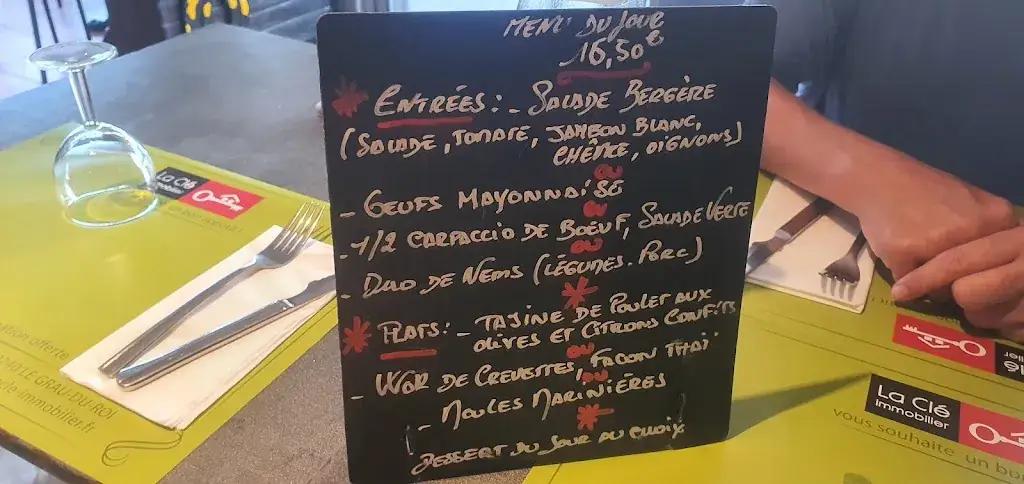 MENU DU JOUR
16,50€
* ENTRÉES : - SALADE BERGÈRE
(SALADE, TOMATE, JAMBON BLANC,
CHÈVRE, OIGNONS)
OU
- OEUFS MAYONNAISE
OU
- 1/2 CARPACCIO DE BOEUF, SALADE VERTE
OU
- DUO DE NEMS (LÉGUMES - PORC)
*
* PLATS : - TAJINE DE POULET AUX
OLIVES ET CITRONS CONFITS
OU
- WOK DE CREVETTES, FAÇON THAÏ
OU
- MOULES MARINIÈRES
*
DESSERT DU JOUR AU CHOIX
La Clé
immobilier
offerte
LE GRAU-DU-ROI
immobilier.fr
La Clé
immobilier
vous souhaite un bo
Clé